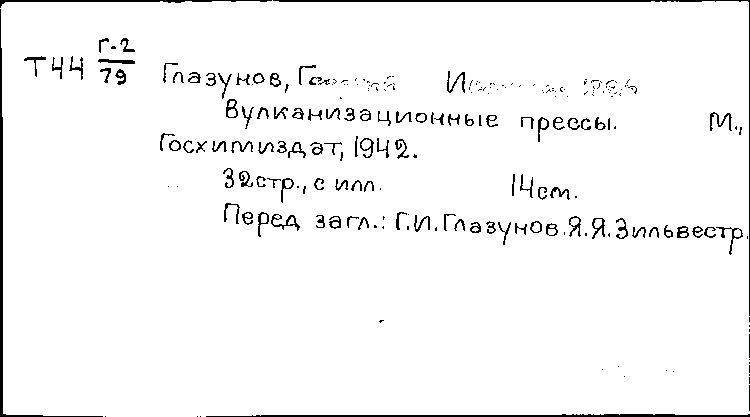 Т44 Г-2/79 Глазунов,
Вулканизационные прессы. М.,
Госхимиздат, 1942.
32стр., с илл. 14см.
Перед загл.: Г.И.Глазунов.Я.Я.Зильвестр.